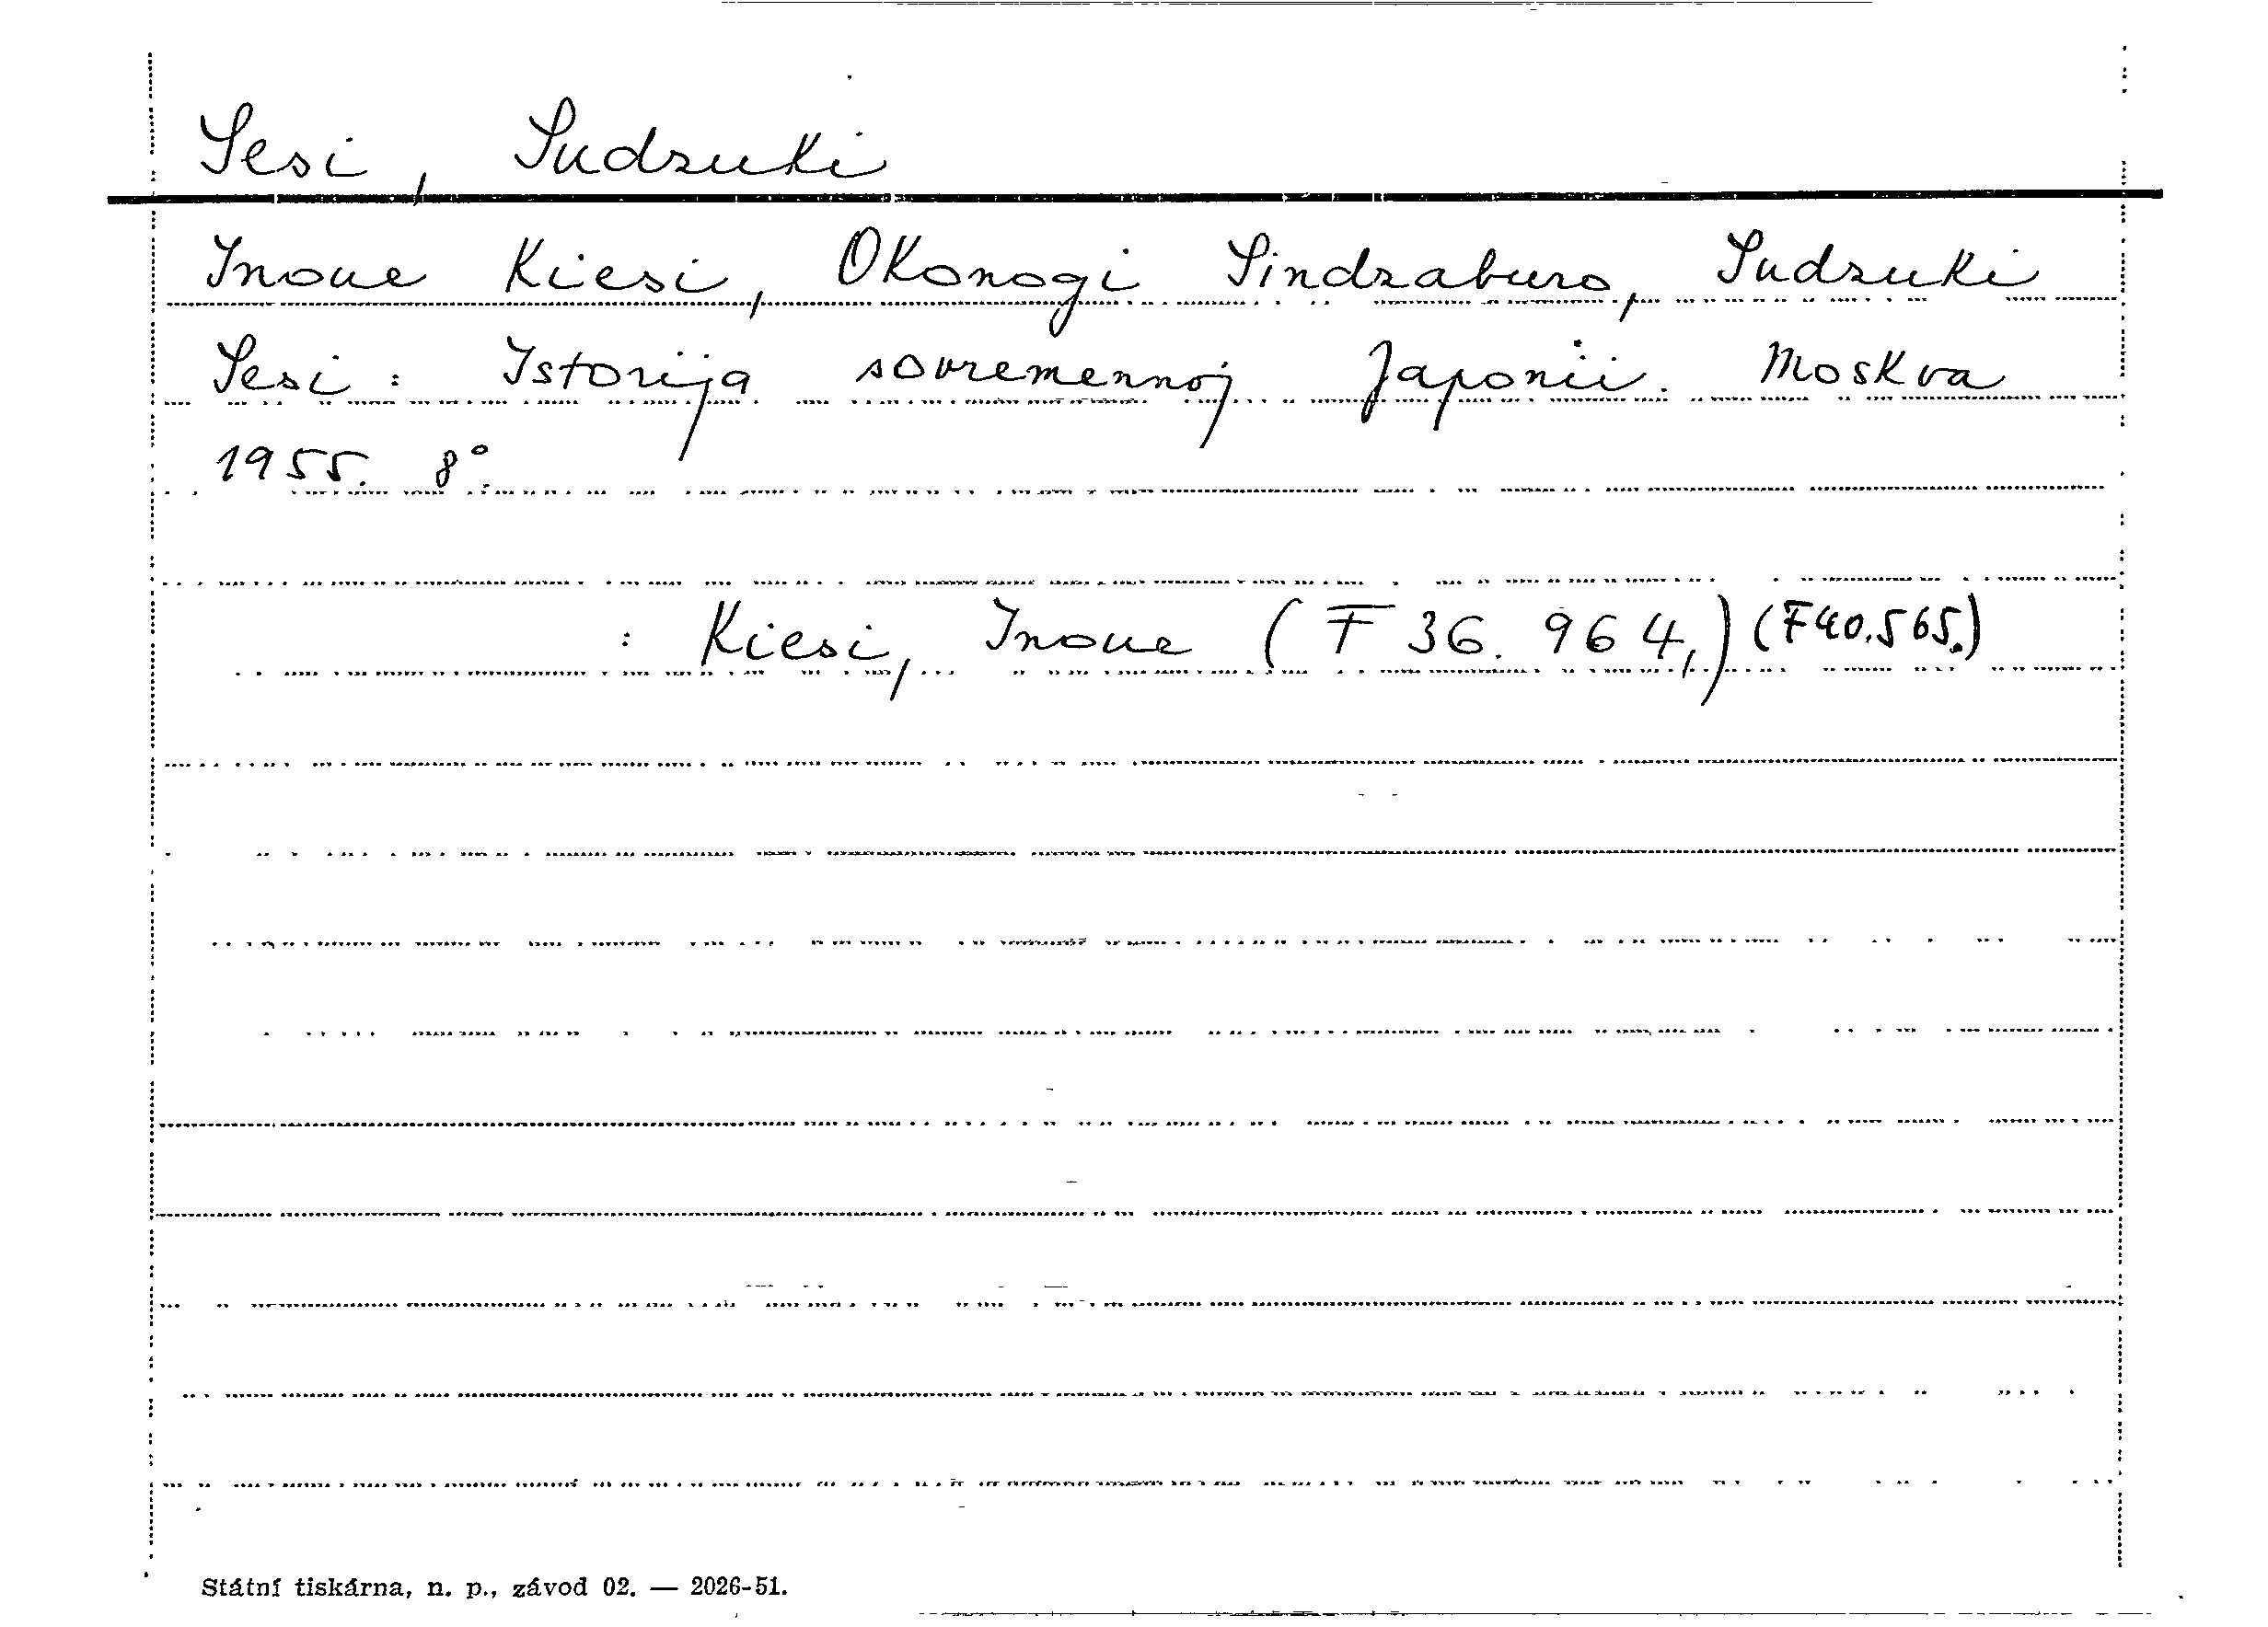 Sesi, Sudzuki
Inoue Kiesi, Okonogi Sindzaburo, Sudzuki
Sesi: Istorija sovremennoj Japonii. Moskva
1955. 8°.
: Kiesi, Inoue (F 36.964,) (F40.565.)
Státní tiskárna, n. p., závod 02. — 2026-51.